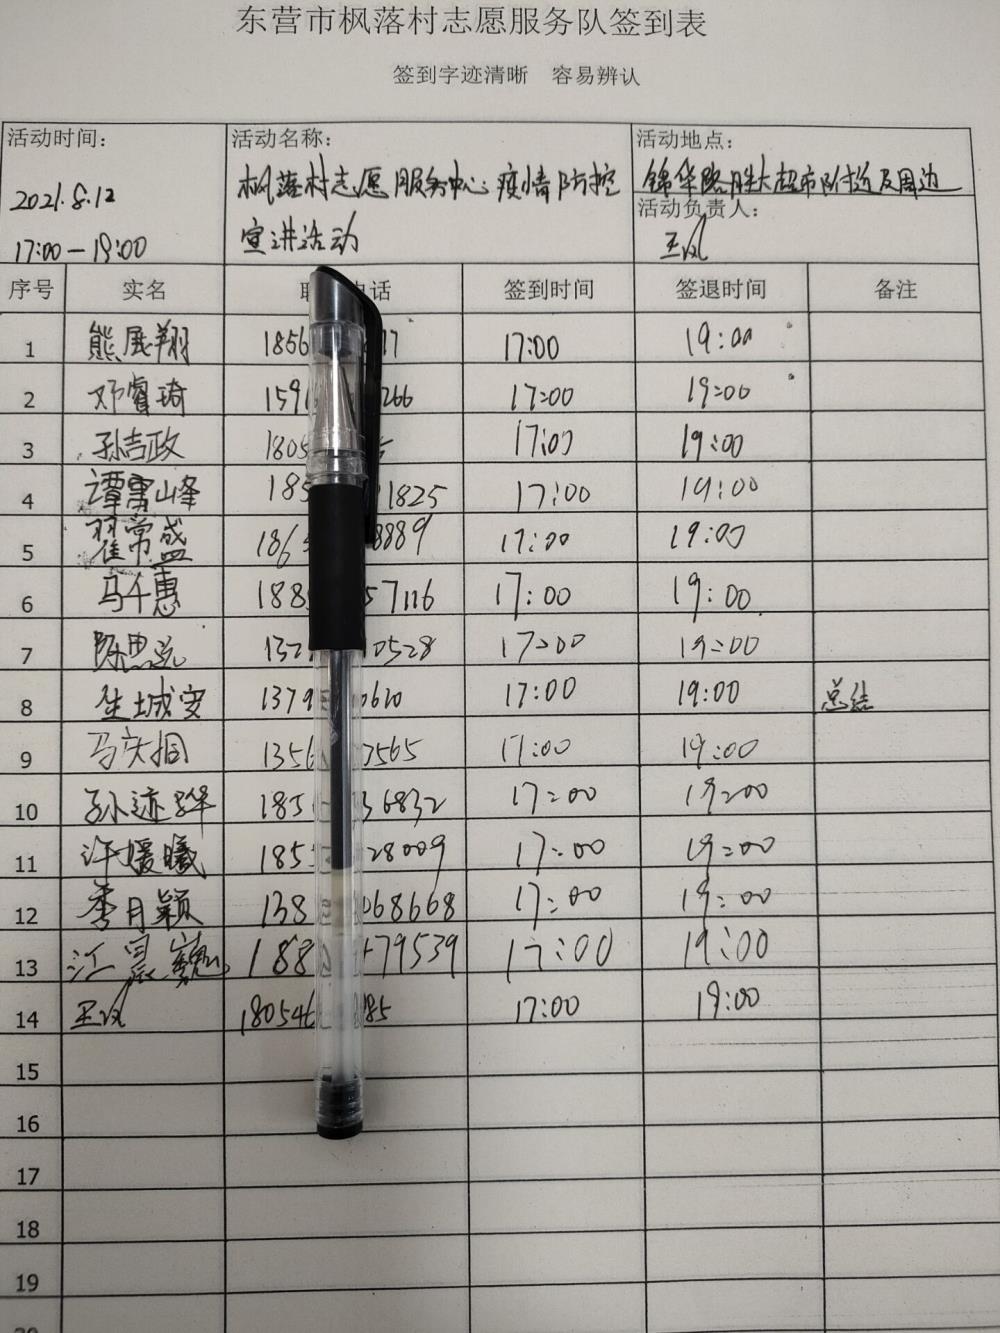 东营市枫落村志愿服务队签到表
签到字迹清晰 容易辨认
活动时间： 活动名称： 活动地点：
2021.8.12 枫落村志愿服务中心疫情防控 锦华路胜大超市附近及周边
17:00-19:00 宣讲活动 活动负责人：
王凤
序号 实名 电话 签到时间 签退时间 备注
1 熊展翔 1856 17:00 19:00
2 邓睿琦 159 266 17:00 19:00
3 孙吉政 1805 17:00 19:00
4 谭富山峰 185 1825 17:00 19:00
5 翟常盛 186 8889 17:00 19:00
6 马千惠 188 57116 17:00 19:00
7 陈思远 132 0528 17:00 19:00
8 生城安 1379 0610 17:00 19:00 总结
9 马庆 1356 3565 17:00 19:00
10 孙迹骅 185 36832 17:00 19:00
11 许媛曦 185 28009 17:00 19:00
12 季月颖 138 068668 17:00 19:00
13 江晨巍 188 79539 17:00 19:00
14 王凤 180546 85 17:00 19:00
15
16
17
18
19